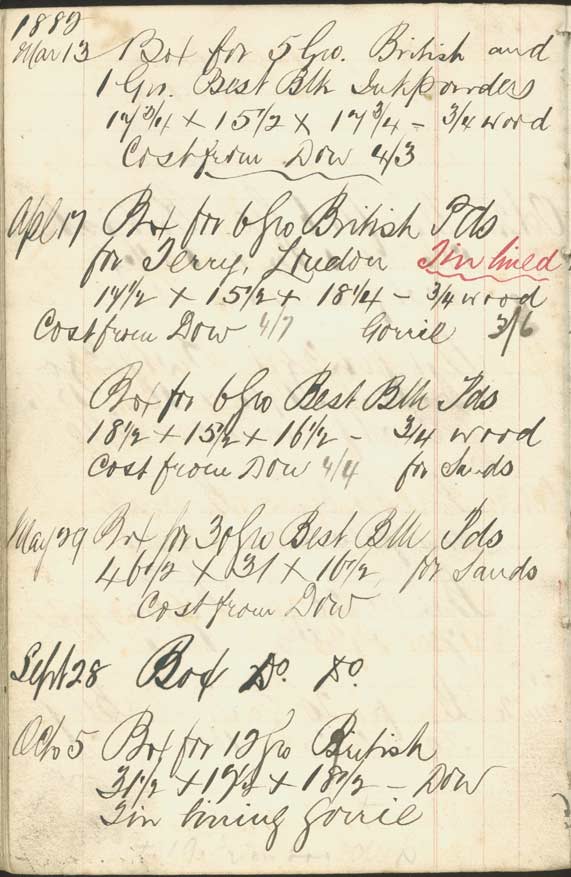 1882
Mar 13 Box for 5 Gro. British and
1 Gro. Best Blk Inkpowders
17 3/4 x 15 1/2 x 17 3/4 - 3/4 wood
Cost from Dow 4/3
Apl 17 Box for 6 Gro British Pds
for Terry, London Tin lined
17 1/2 x 15 1/2 x 18 1/4 - 3/4 wood
Cost from Dow 4/7 Gorrie 3/6
Box for 6 Gro Best Blk Pds
18 1/2 x 15 1/2 x 16 1/2 - 3/4 wood
Cost from Dow 4/4 for Sands
May 29 Box for 30 Gro Best Blk Pds
46 1/2 x 31 x 16 1/2 for Sands
Cost from Dow
Sept 28 Box Do. Do.
Octo 5 Box for 12 Gro British
31 1/2 x 18 1/2 - Dow
Tin lining Gorrie